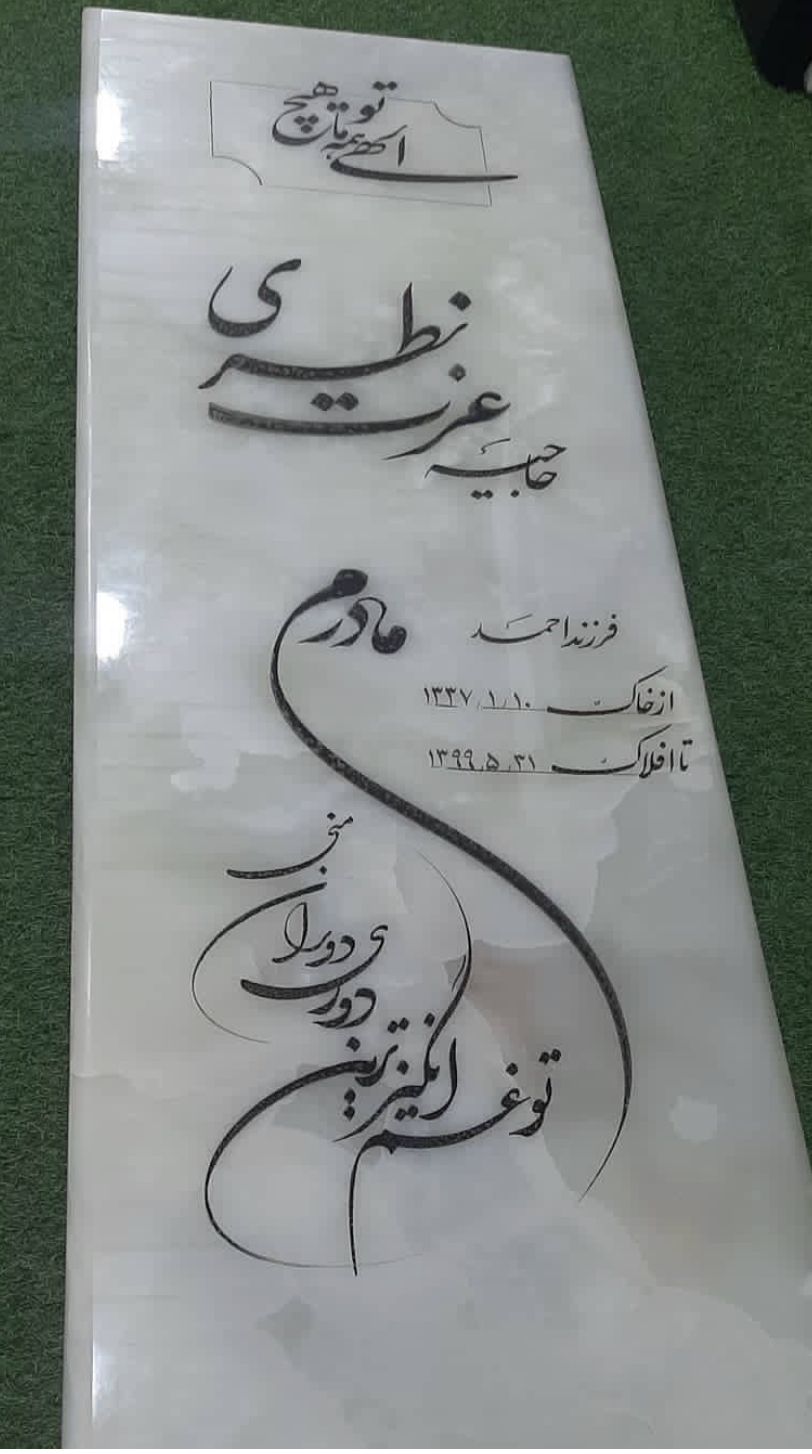 الهی همه تو ما هیچ
حاجیه
عزت
نظری
مادرم
فرزند احمد
از خاک ۱۳۳۷/۱/۱۰
تا افلاک ۱۳۹۹/۵/۳۱
تو غم انگیزترین
دوری دوران
منی